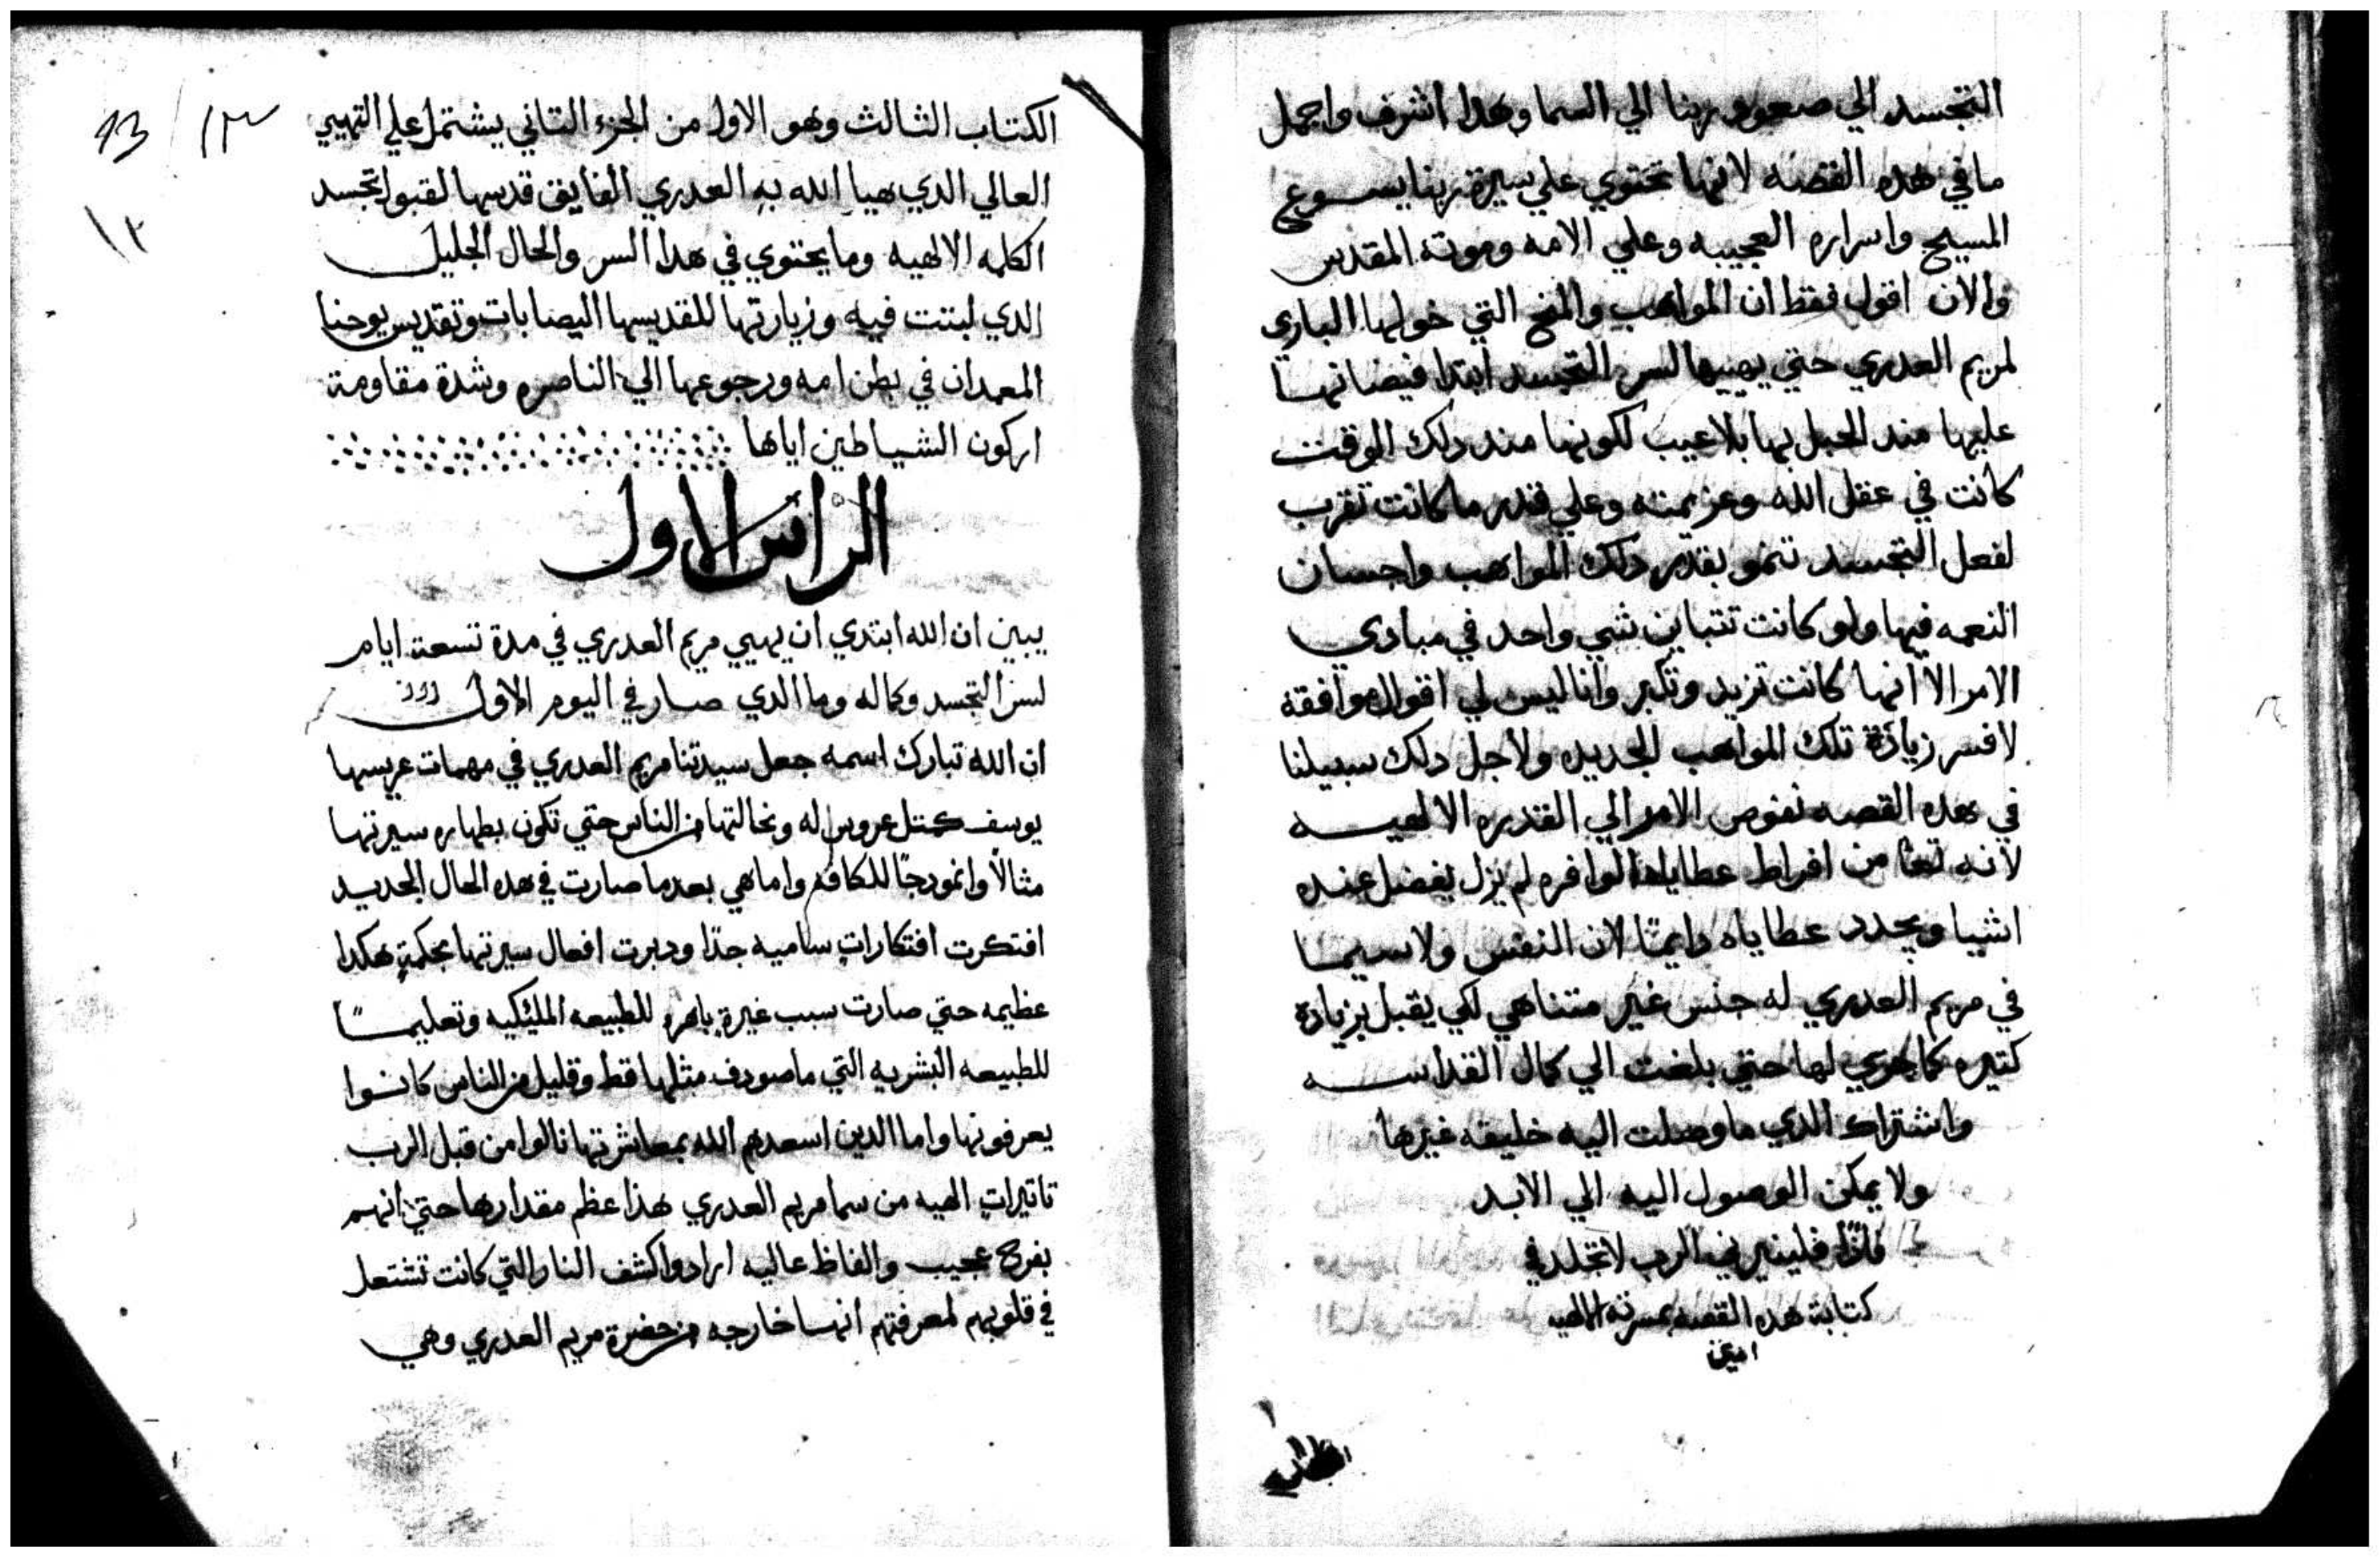 التجسد الي صعود ربنا الي السما وهدا اشرف واجمل
ما في هده القصه لانها تحتوي علي سيرة ربنا يسوع
المسيح واسراره العجيبه وعلي الامه وموته المقدس
والان اقول فقط ان المواهب والمنح التي خولها الباري
لمريم العدري حتي يهييها لسر التجسد ابتدا فيضانها
عليها مند الحبل بها بلا عيب لكونها مند دلك الوقت
كانت في عقل الله وعزيمته وعلي قدر ما كانت تقرب
لفعل التجسد تنمو بقدر دلك المواهب واحسان
النعمه فيها ولو كانت تتباين شي واحد في مبادي
الامر الا انها كانت تزيد وتكبر وانا ليس لي اقوال موافقة
لافسر زيادة تلك المواهب الجديده ولاجل دلك سبيلنا
في هده القصه نفوض الامر الي القدره الالهيه
لانه تعا من افراط عطاياه الوافره لم يزل يفضل عنده
اشيا ويجدد عطاياه دايمًا لان النفس ولاسيما
في مريم العدري له جنس غير متناهي لكي يقبل بزيادة
كتيره كما جري لها حتي بلغت الي كمال القداسه
واشتراك الدي ما وصلت اليه خليقه غيرها
ولا يمكن الوصول اليه الي الابد
فادًا فلينيرني الرب لاتخلد في
كتابة هده القصه بمسرته الالهيه
امين
13 / ١٣
١٢
الكتاب الثالث وهو الاول من الجزء التاني يشتمل علي التهيي
العالي الدي هيا الله به العدري الفايق قدسها لقبول تجسد
الكلمه الالهيه وما يحتوي في هدا السر والحال الجليل
الدي لبتت فيه وزيارتها للقديسها اليصابات وتقديس يوحنا
المعمدان في بطن امه ورجوعها الي الناصره وشدة مقاومة
اركون الشياطين اياها
الراس الاول
يبين ان الله ابتدي ان يهيي مريم العدري في مدة تسعة ايام
لسر التجسد وكماله وما الدي صار في اليوم الاول
ان الله تبارك اسمه جعل سيدتنا مريم العدري في مهمات عريسها
يوسف كمتل عروس له ومخالتها من الناس حتي تكون بطهاره سيرتها
مثالًا وانمودجًا للكافه واما هي بعدما صارت في هده الحال الجديد
افتكرت افتكارات ساميه جدًا ودبرت افعال سيرتها بحكمةٍ هكدا
عظيمه حتي صارت سبب غيرة باهره للطبيعه المليكيه وتعليمًا
للطبيعه البشريه التي ما صودف مثلها قط وقليل من الناس كانوا
يعرفونها واما الدين اسعدهم الله بمعاشرتها نالوا من قبل الرب
تاتيرات الهيه من سما مريم العدري هذا عظم مقدارها حتي انهم
بفرح عجيب والفاظ عاليه ارادوا كشف النار التي كانت تشتعل
في قلوبهم لمعرفتهم انها خارجه من حضرة مريم العدري وهي